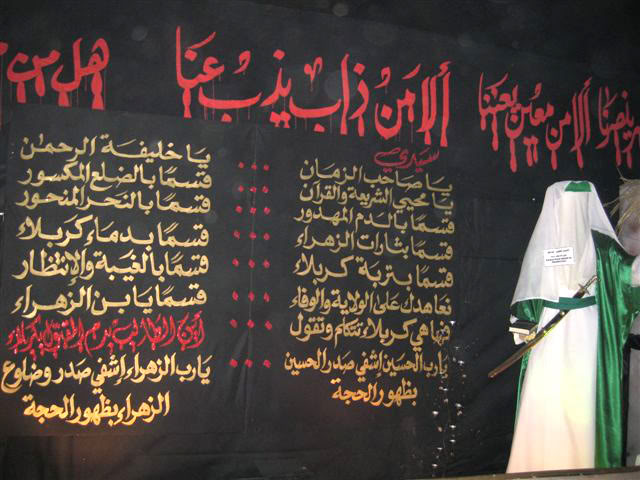 ر ينصرنا ألا من معين يعيننا
ألا من ذاب يذب عنا
هل من
سيدي
يا صاحب الزمان ... يا خليفة الرحمن
يا محيي الشريعة والقرآن ... قسما بالضلع المكسور
قسما بالدم المهدور ... قسما بالنحر المنحور
قسما بثارات الزهراء ... قسما بدماء كربلاء
قسما بتربة كربلاء ... قسما بالغيبة والإنتظار
نعاهدك على الولاية والوفاء ... قسما يا بن الزهراء
فها هي كربلاء تتكلم وتقول ... أين الطالب بدم المقتول بكربلاء
يارب الحسين إشفي صدر الحسين ... يارب الزهراء إشفي صدر وضلوع
بظهور الحجة
الزهراء بظهور الحجة